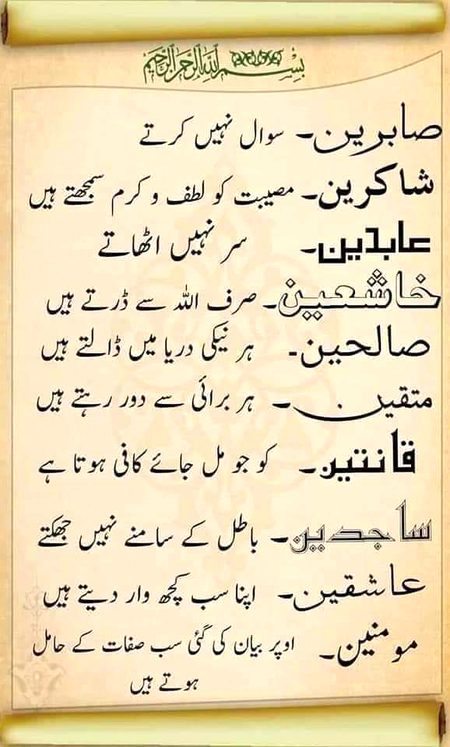 بِسْمِ اللهِ الرَّحْمٰنِ الرَّحِيْمِ
صابرین۔ سوال نہیں کرتے
شاکرین۔ مصیبت کو لطف و کرم سمجھتے ہیں
عابدین۔ سر نہیں اٹھاتے
خاشعین۔ صرف اللہ سے ڈرتے ہیں
صالحین۔ ہر نیکی دریا میں ڈالتے ہیں
متقین۔ ہر برائی سے دور رہتے ہیں
قانتین۔ کو جو مل جائے کافی ہوتا ہے
ساجدین۔ باطل کے سامنے نہیں جھکتے
عاشقین۔ اپنا سب کچھ وار دیتے ہیں
مومنین۔ اوپر بیان کی گئی سب صفات کے حامل
ہوتے ہیں